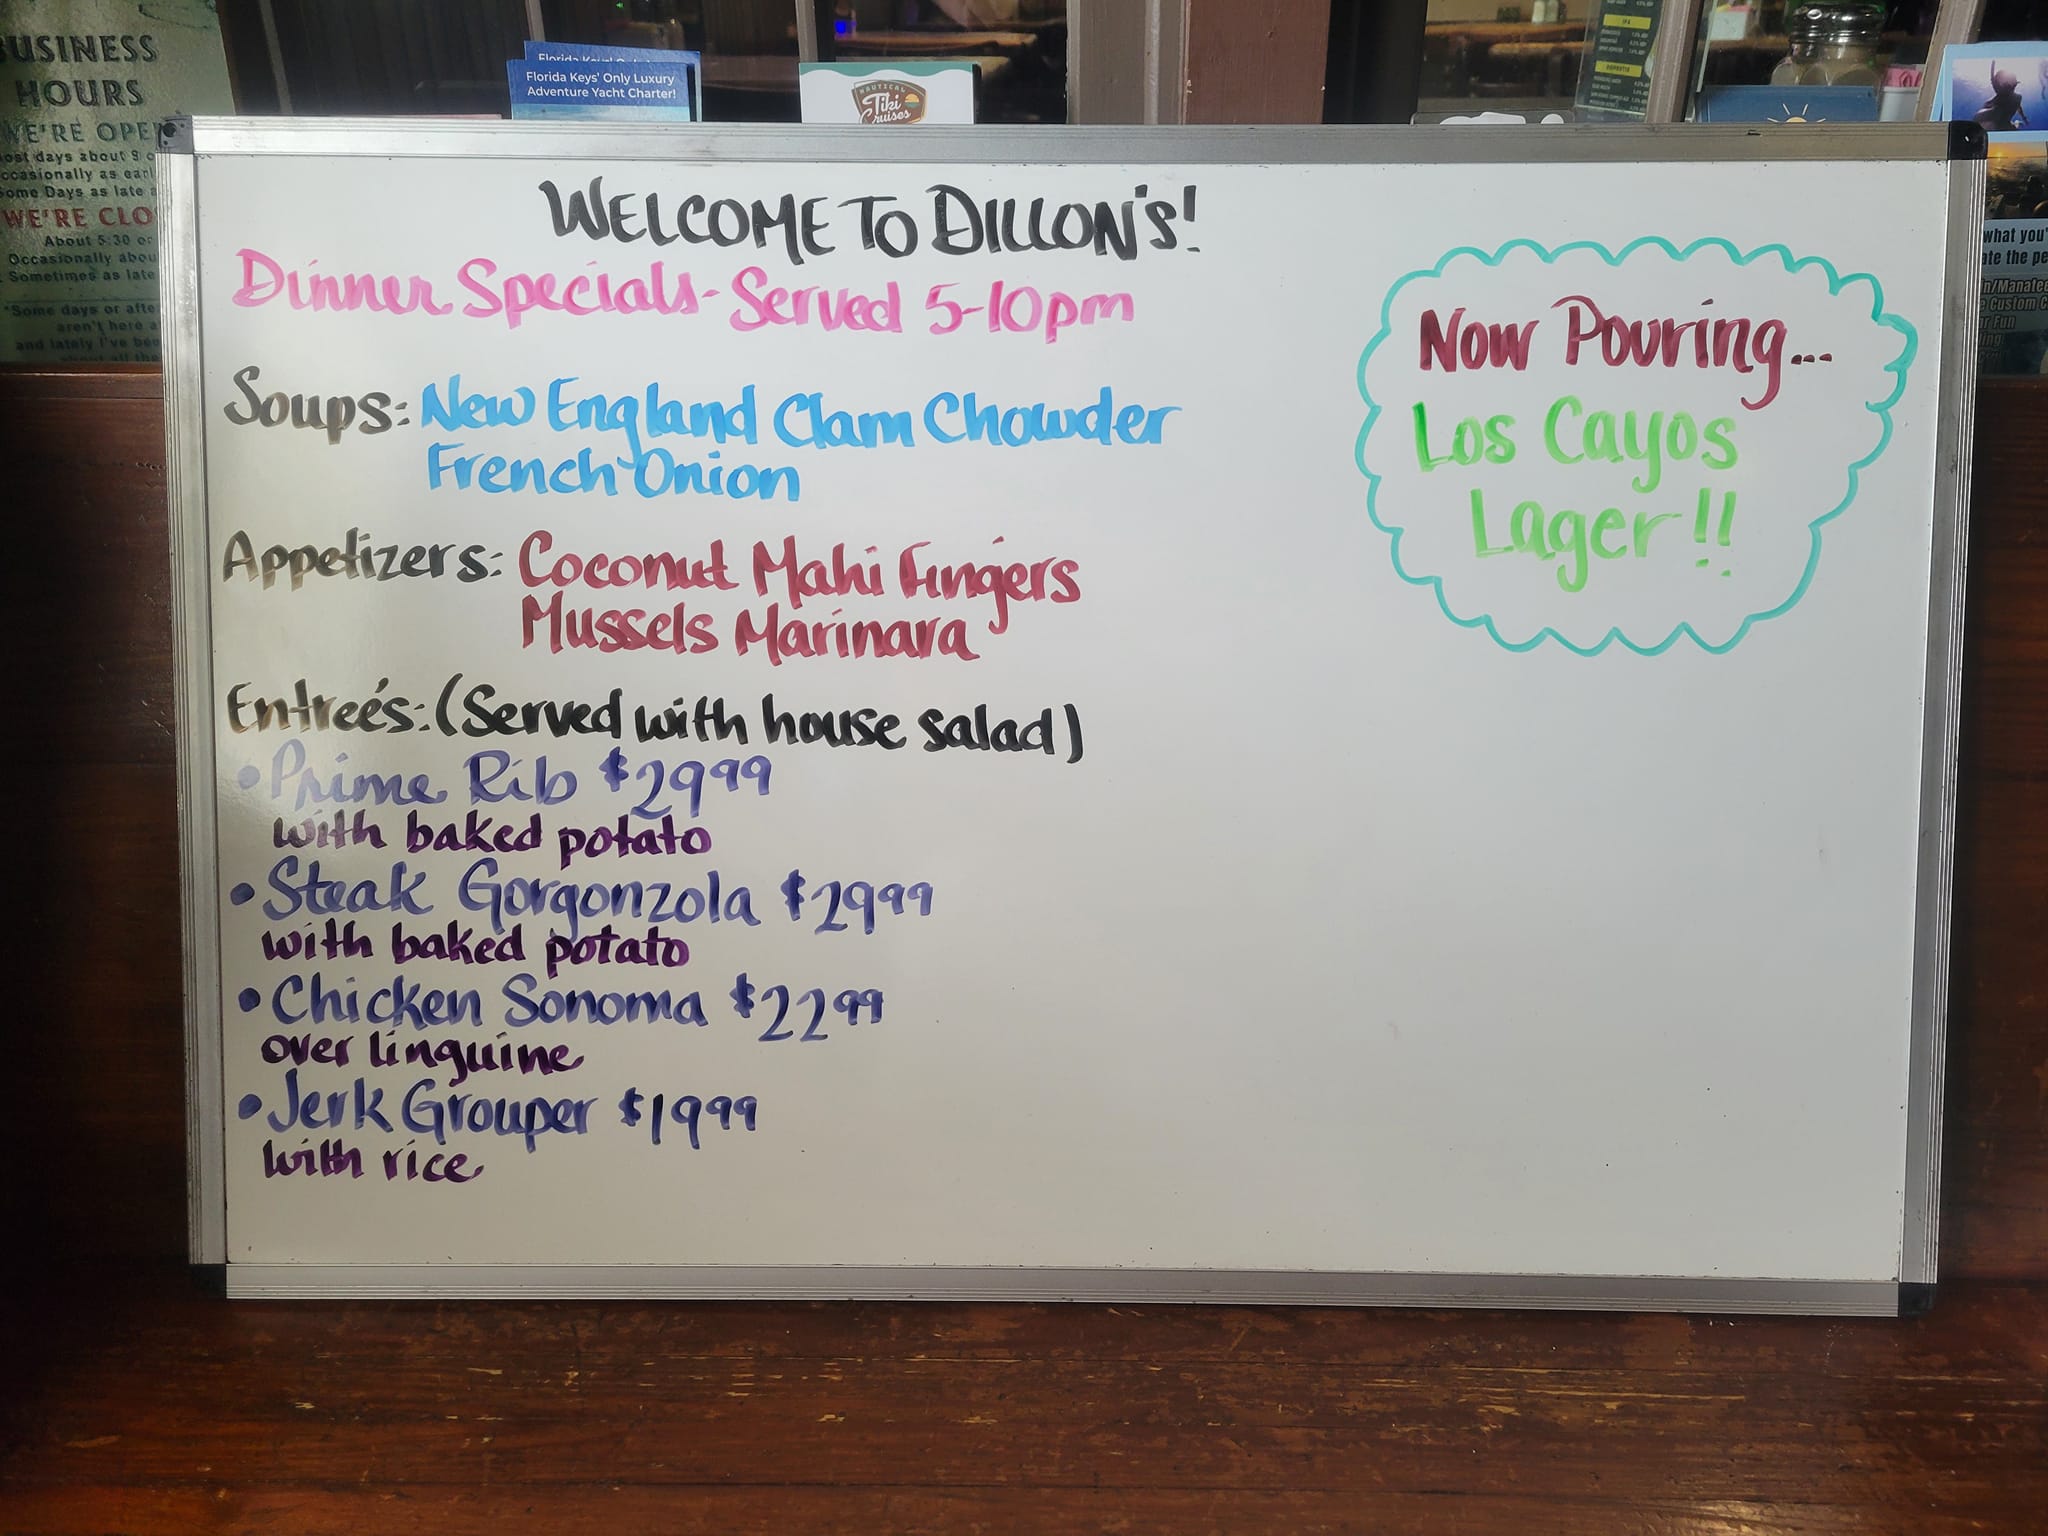 BUSINESS
HOURS
WE'RE OPEN
WE'RE CLO
About 5:30 or
Sometimes as late
*Some days or afte
aren't here a
and lately I've bee
about all the
Florida Keys' Only Luxury
Adventure Yacht Charter!
NAUTICAL
Tiki
Cruises
IPA
WELCOME TO DILLON'S!
Dinner Specials - Served 5-10pm
Soups: New England Clam Chowder
French Onion
Appetizers: Coconut Mahi Fingers
Mussels Marinara
Entreé's: (Served with house salad)
• Prime Rib $29.99
with baked potato
• Steak Gorgonzola $29.99
with baked potato
• Chicken Sonoma $22.99
over linguine
• Jerk Grouper $19.99
with rice
Now Pouring...
Los Cayos
Lager!!
what you'
ate the pe
n/Manatee
Custom C
Fun